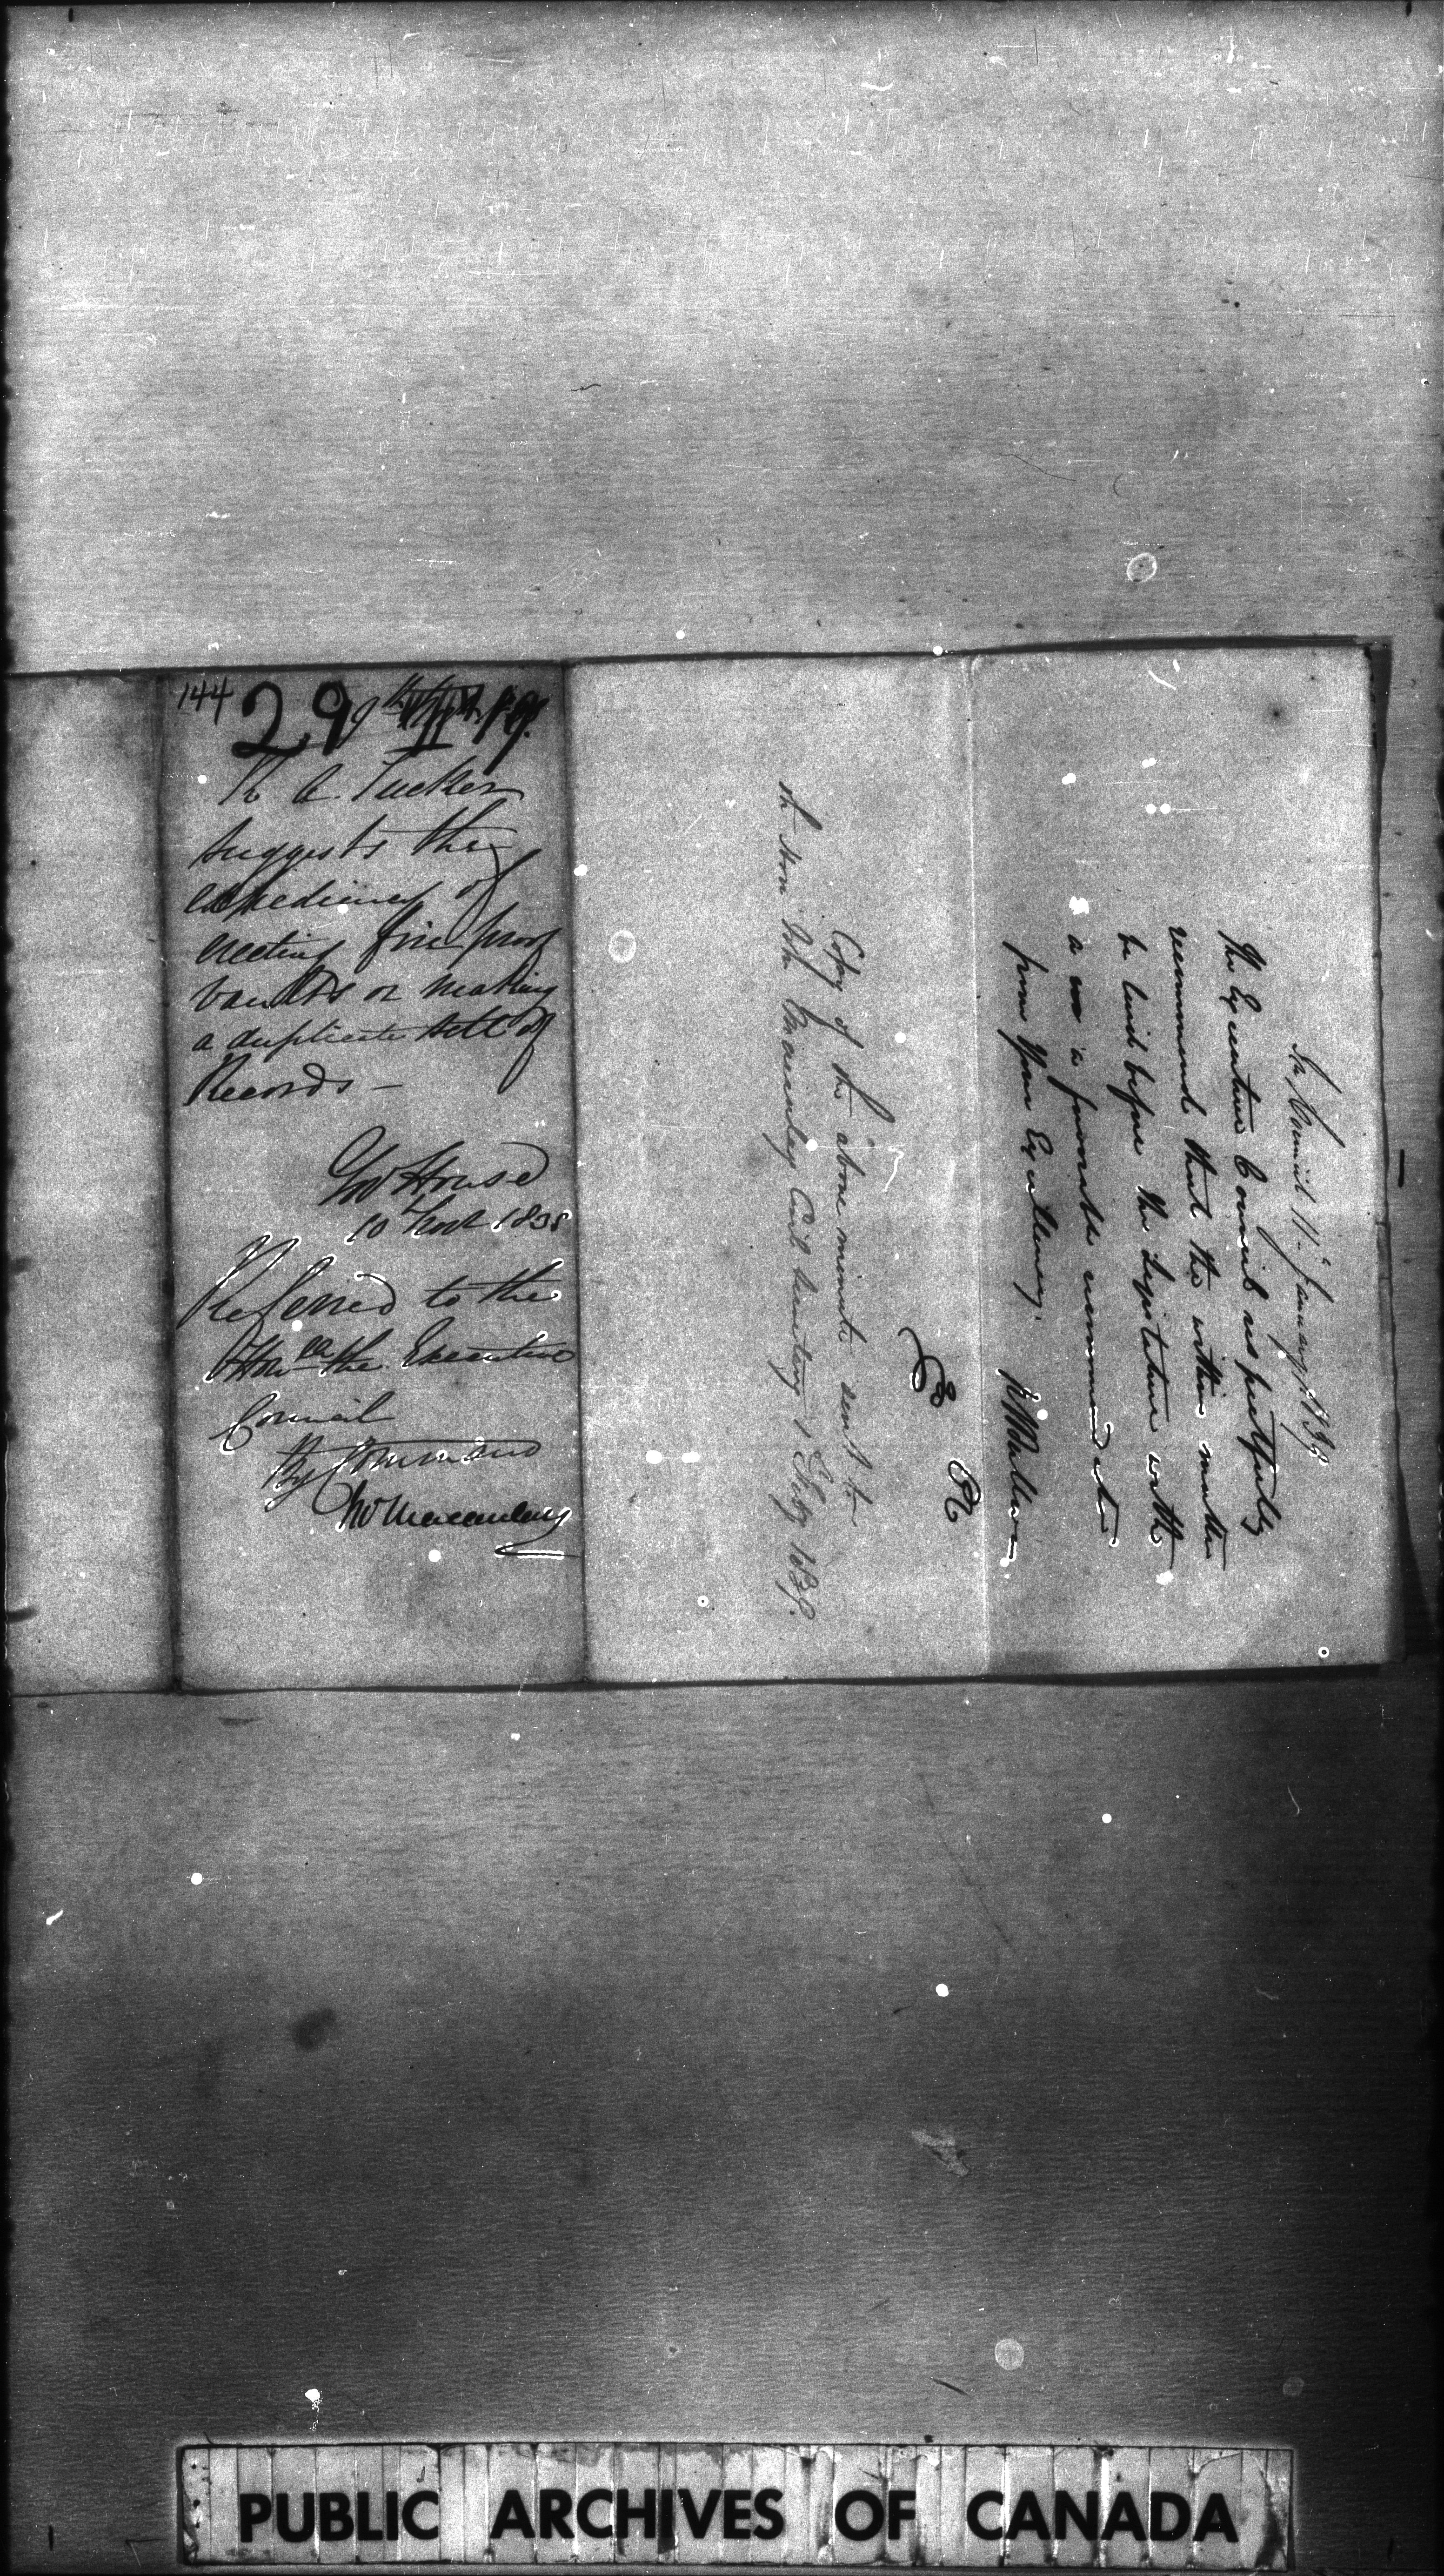 144
29
R A Tucker
suggests the
expediency of
erecting fire proof
vaults or making
a duplicate sett of
Records —
Gov House
10 Novr 1838
Referred to the
Honble the Executive
Council
By Command
Jno Macaulay
In Council 11th January 1839
The Executive Council respectfully
recommend that the within matter
be laid before the Legislature with
a favorable recommendat
from Your Excellency.
Copy of the above minute sent to
Hon John Macaulay Civil Secretary 1 Feby 1839.
PUBLIC ARCHIVES OF CANADA